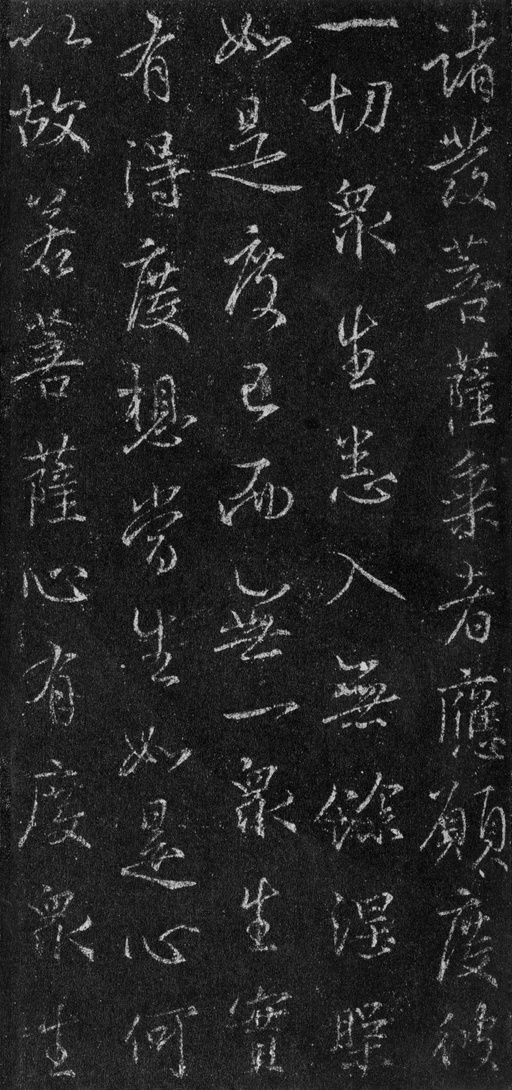 諸發菩薩乘者應願度彼
一切眾生悉入無餘涅槃
如是度已而無一眾生實
有得度想當生如是心何
以故若菩薩心有度眾生